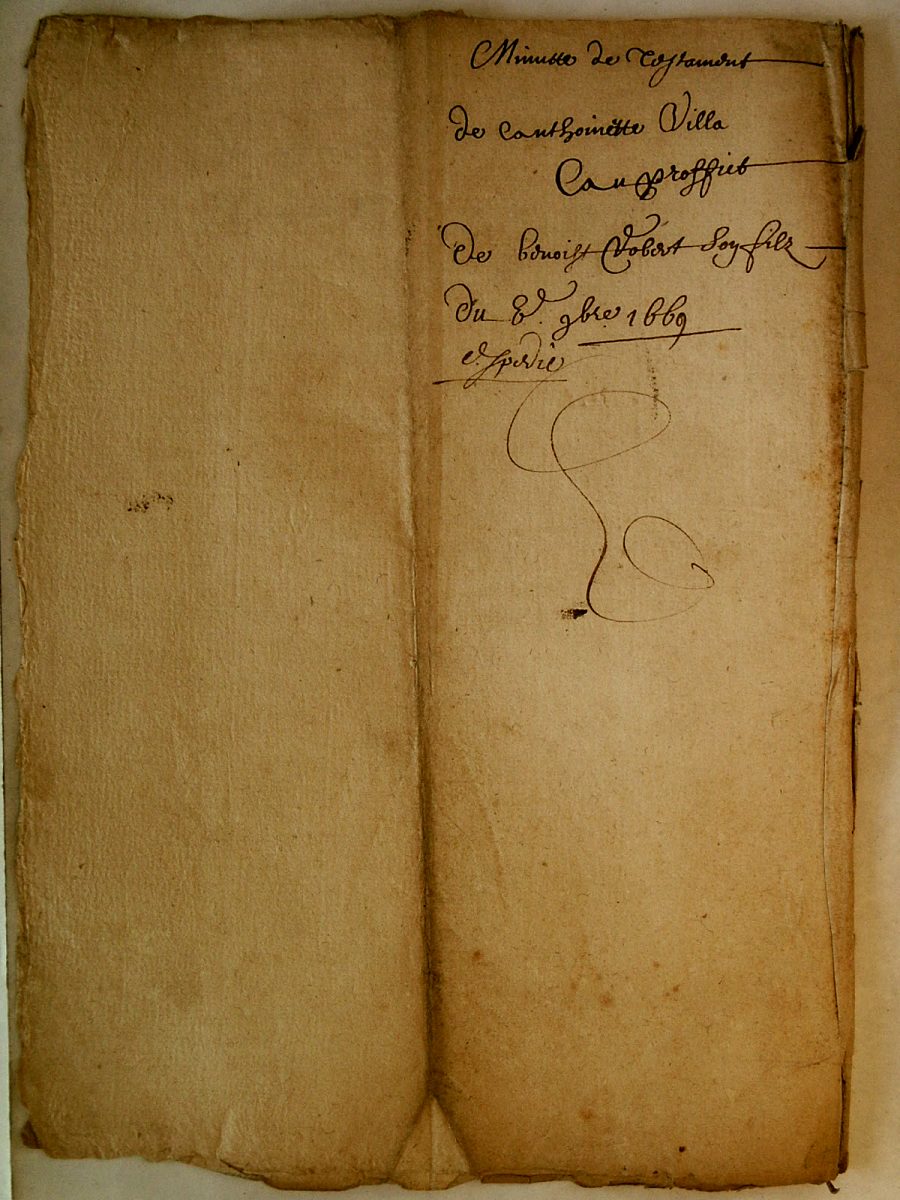 Minutte de Testament
de anthoinette Villa
au proffict
de benoist Robert son filz
du 8e. 9bre 1669
espedié